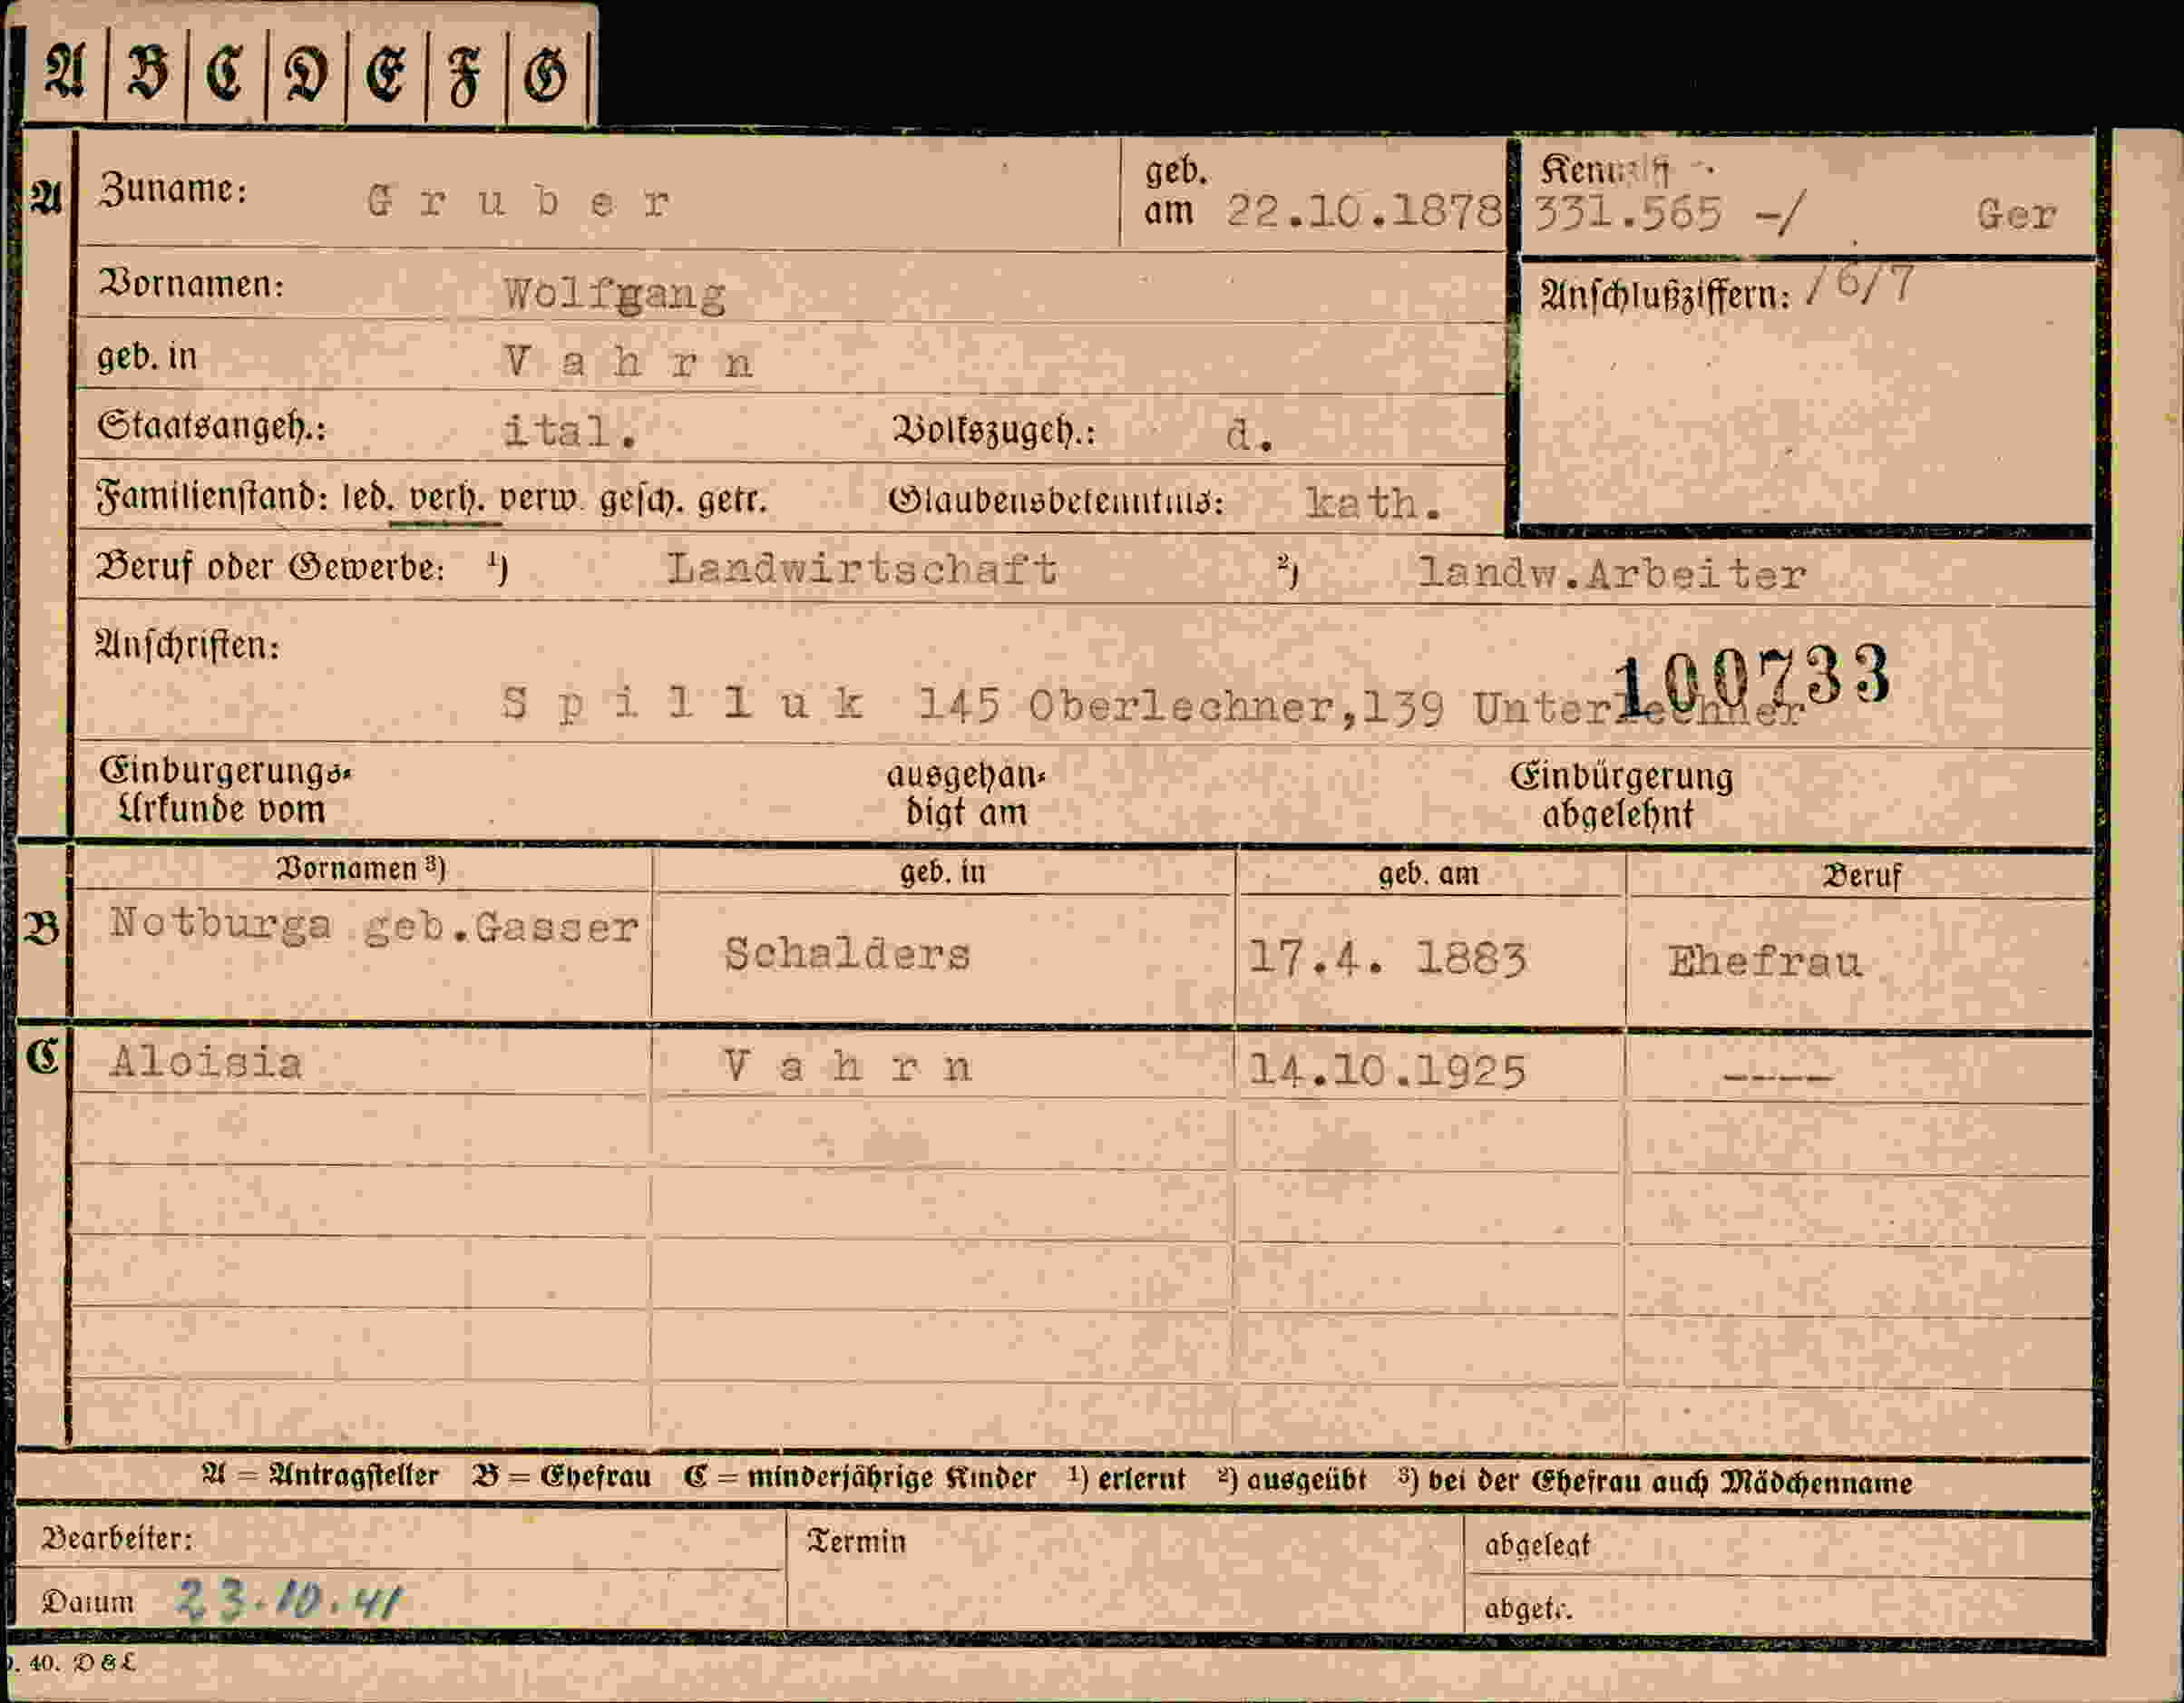 A B C D E F G
A Zuname: Gruber geb. am 22.10.1878 331.565 -/ Ger
Vornamen: Wolfgang Anschlußziffern: /6/7
geb. in Vahrn
Staatsangeh.: ital. Volkszugeh.: d.
Familienstand: led. verh. verw. gesch. getr. Glaubensbekenntnis: kath.
Beruf oder Gewerbe: ¹) Landwirtschaft ²) landw.Arbeiter
Anschriften:
100733
Spilluk 145 Oberlechner,139 Unterlechner
Einbürgerungs- ausgehän- Einbürgerung
Urkunde vom digt am abgelehnt
Vornamen ³) geb. in geb. am Beruf
B Notburga geb.Gasser Schalders 17.4. 1883 Ehefrau
C Aloisia Vahrn 14.10.1925 ----
A = Antragsteller B = Ehefrau C = minderjährige Kinder ¹) erlernt ²) ausgeübt ³) bei der Ehefrau auch Mädchenname
Bearbeiter: Termin abgelegt
Datum 23.10.41 abgetr.
. 40. D & L